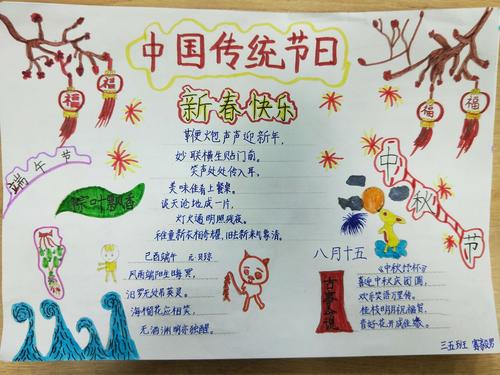 中国传统节日
福
福
福
福
新春快乐
鞭炮声声迎新年,
妙联横生贴门前。
笑声处处传入耳,
美味佳肴上餐桌。
谈天论地成一片,
灯火通明照残夜。
稚童新衣相奇耀,旧去新来与幕清。
端午节
粽叶飘香
己酉端午 元 贝琼
风雨端阳生晦冥,
汨罗无处吊英灵。
海榴花应相笑,
无酒渊明亦独醒。
中秋节
八月十五
《中秋抒怀》
喜迎中秋庆团圆,
欢乐笑语万里传。
桂枝明月祝福暂,
春好花开成佳缘。
三五班